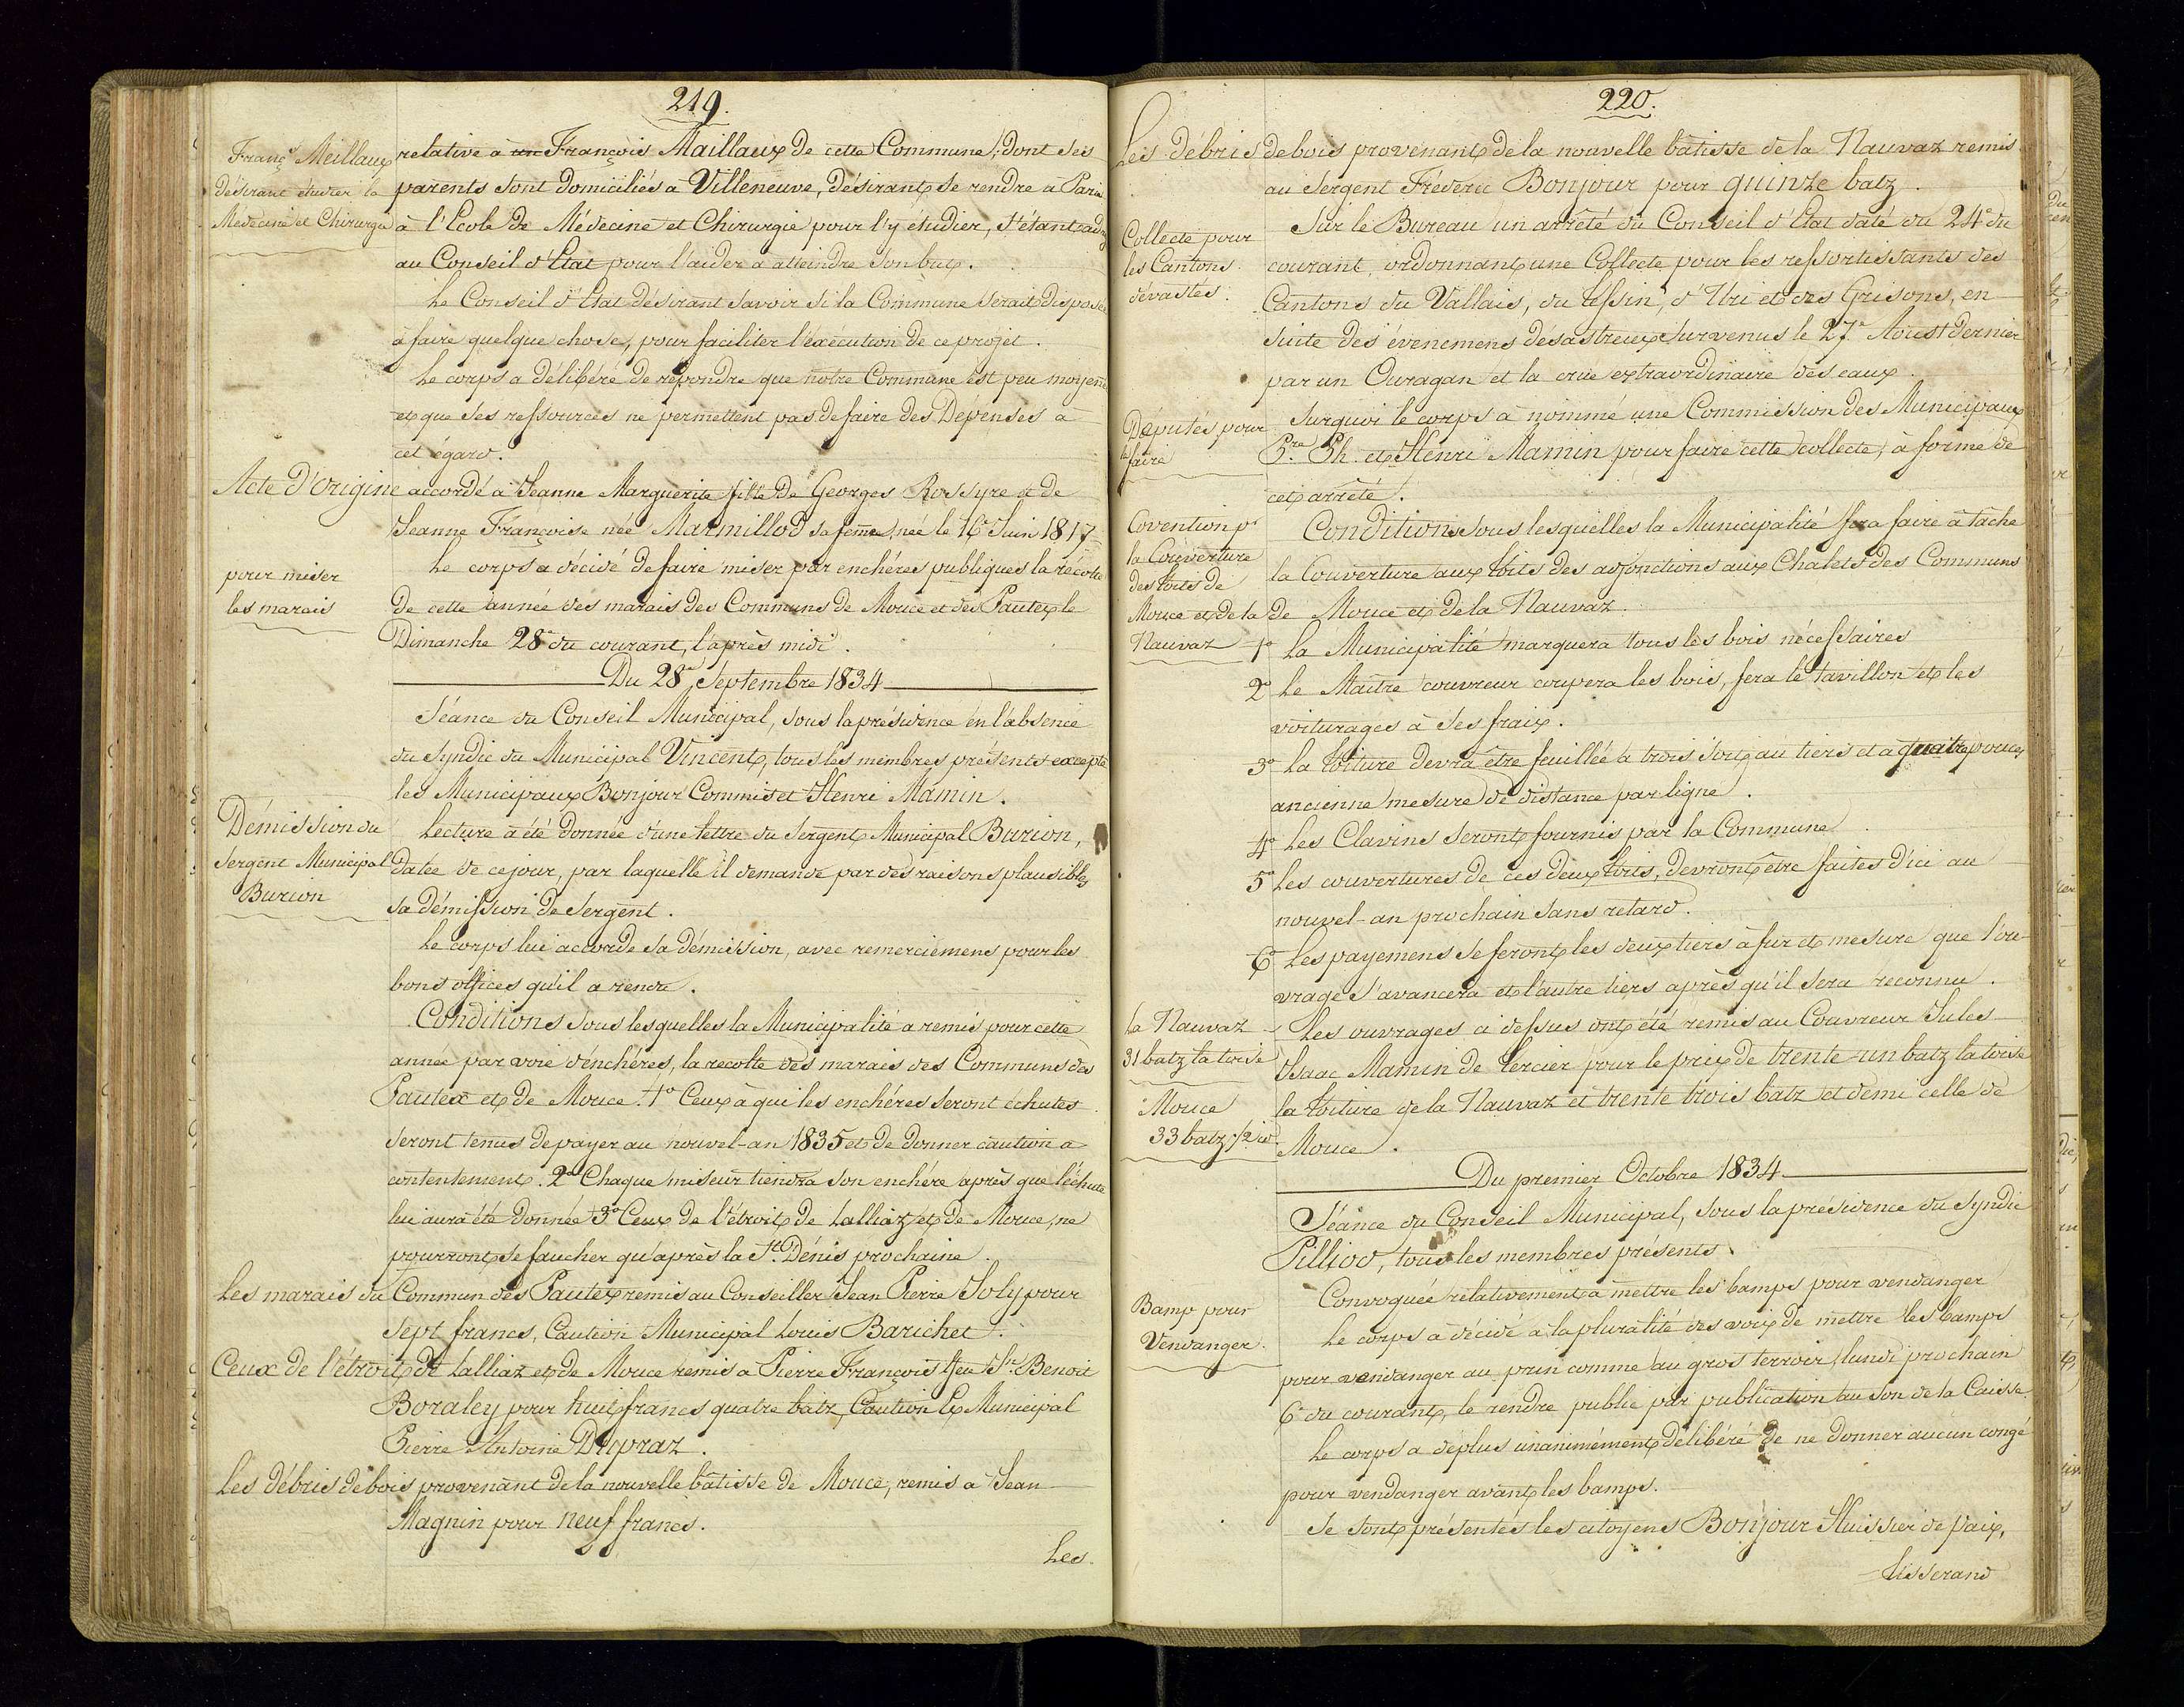 219.
Franç.s Meillaux
désirant étudier la
Médecine et Chirurgie
relative à un François Maillaux de cette Commune, dont ses
parents sont domiciliés à Villeneuve, désirant se rendre à Paris
à l'Ecole de Médecine et Chirurgie pour l'y étudier, s'étant
au Conseil d'Etat pour l'aider à atteindre son but.
Le Conseil d'Etat désirant savoir si la Commune serait disposée
à faire quelque chose, pour faciliter l'exécution de ce projet.
Le corps a délibéré de répondre que notre Commune est peu moyenné
et que ses ressources ne permettent pas de faire des Dépenses à
cet égard.
Acte d'Origine accordé à Jeanne Marguerite fille De Georges Rossyre et de
Jeanne Françoise née Marmillod sa femme, née le 16e Juin 1817
pour miser
les marais
Le corps a décidé de faire miser par enchéres publiques la récolte
de cette année des marais des Communs de Mouce et des Pautex le
Dimanche 28e du courant, l'après midi.
Du 28e Septembre 1834
Séance du Conseil Municipal, sous la présidence en l'absence
du Syndic du Municipal Vincent, tous les membres présents excepté
les Municipaux Bonjour Commis et Henri Mamin.
Démission du
Sergent Municipal
Burion
Lecture a été donnée d'une lettre du Sergent Municipal Burion,
datée de ce jour, par laquelle il demande par des raisons plausibles
sa démission de Sergent.
Le corps lui accorde sa démission, avec remerciemens pour les
bons offices qu'il a rendu.
Conditions sous lesquelles la Municipalité a remis pour cette
année par voie d'enchéres, la recolte des marais des Communs des
Pautex et de Mouce. 1o Ceux à qui les enchéres seront échutes
seront tenus de payer au nouvel-an 1835 et de donner caution à
contentement. 2o Chaque miseur tiendra son enchére après que l'échute
lui aura été donnée 3o Ceux de l'étroit de Lalliaz et de Mouce, ne
pourront se faucher qu'après la St. Dénis prochaine.
Les marais du Commun des Pautex remis au Conseiller Jean Pierre Joly pour
sept francs, Caution Municipal Louis Barichet.
Ceux de l'étroit de Lalliaz et de Mouce remis à Pierre François feu Jn. Benoit
Boraley pour huit francs quatre batz, Caution le Municipal
Pierre Antoine Dupraz.
Les débris de bois provenant de la nouvelle bâtisse de Mouce, remis à Jean
Magnin pour neuf francs.
Les
220.
Les débris de bois provenant de la nouvelle bâtisse de la Nauvaz remis
au Sergent Fréderic Bonjour pour quinze batz.
Collecte pour
les Cantons
dévastés.
Sur le Bureau un arrêté du Conseil d'Etat daté du 24e du
courant, ordonnant une Collecte pour les ressortissants des
Cantons du Vallais, du Tessin, d'Uri et des Grisons, en
suite des évenemens desastreux survenus le 27e Aoust dernier
par un Ouragan et la crue extraordinaire des eaux.
Députés pour
la faire
Surquoi le corps a nommé une Commission des Municipaux
Pre. Ph. et Henri Mamin pour faire cette collecte, à forme de
cet arrêté.
Covention pr
la Couverture
des toits de
Mouce et de la
Nauvaz
Conditions sous lesquelles la Municipalité fera faire à tâche
la Couverture aux toits des adjonctions aux Chalets des Communs
de Mouce et de la Nauvaz.
1o La Municipalité marquera tous les bois nécessaires
2o Le Maitre couvreur coupera les bois, fera le tavillon et les
voiturages à ses fraix.
3o La toiture devra être feuillée à trois soit au tiers et à quatre pouces
ancienne mesure de distance par ligne.
4o Les Clavins seront fournis par la Commune
5o Les couvertures de ces deux toits, devront être faites d'ici au
nouvel-an prochain sans retard.
6o Les payemens se feront les deux tiers à fur et mesure que l'ou-
vrage s'avancera et l'autre tiers après qu'il sera reconnu.
La Nauvaz
31 batz la toise
Mouce
33 batz 1/2 id
Les ouvrages ci dessus ont été remis au Couvreur Jules
Isaac Mamin de Tercier pour le prix de trente-un batz la toise
la toiture de la Nauvaz et trente trois batz et demi celle de
Mouce.
Du premier Octobre 1834
Séance du Conseil Municipal, sous la présidence du Syndic
Pilliod, tous les membres présents.
Bamp pour
Vendanger.
Convoquée relativement à mettre les bamps pour vendanger
Le corps a décidé à la pluralité des voix de mettre les bamps
pour vendanger au prin comme au gros terroir, lundi prochain
6e du courant, le rendre public par publication au son de la Caisse.
Le corps a deplus unanimement délibéré de ne donner aucun congé
pour vendanger avant les bamps.
Se sont présentés les citoyens Bonjour Huissier de Paix,
Tisserand